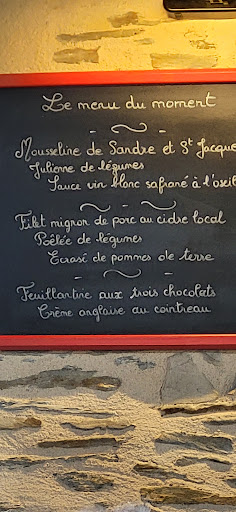 Le menu du moment
Mousseline de Sandre et St Jacque
Julienne de légumes
Sauce vin blanc safrané à l'oseil
Filet mignon de porc au cidre local
Poêlée de légumes
Ecrasé de pommes de terre
Feuillantine aux trois chocolats
Crème anglaise au cointreau